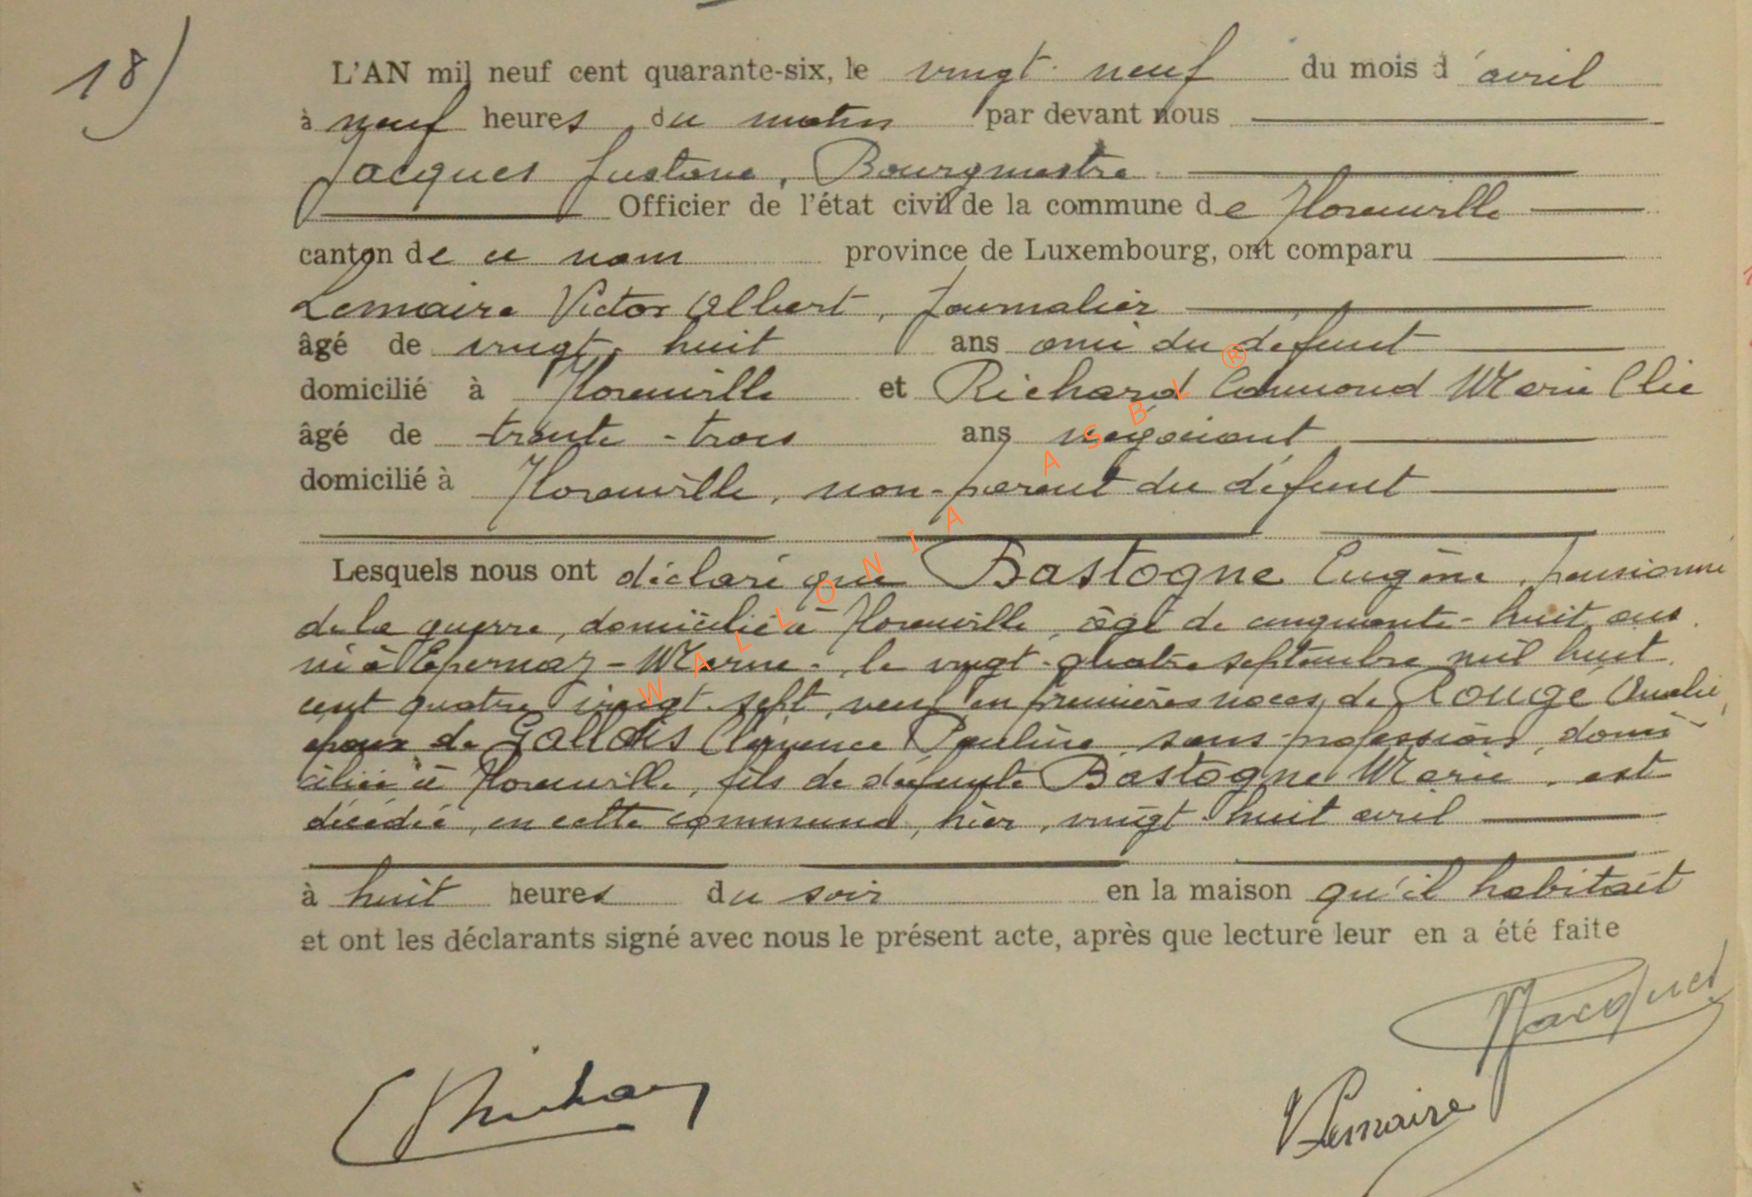 18)
L'AN mil neuf cent quarante-six, le vingt neuf du mois d'avril
à neuf heures du matin par devant nous
Jacques Gustave, Bourgmestre
Officier de l'état civil de la commune de Florenville
canton de ce nom province de Luxembourg, ont comparu
Lemaire Victor Albert, Journalier
âgé de vingt-huit ans ami du défunt
domicilié à Florenville et Richard Edmond Marie Elie
âgé de trente-trois ans négociant
domicilié à Florenville, non-parent du défunt
Lesquels nous ont déclaré que Bastogne Eugène, pensionné
de la guerre, domicilié à Florenville, âgé de cinquante-huit ans
né à Epernay-Marne, le vingt-quatre septembre mil huit
cent quatre vingt-sept, veuf en premières noces de Rouge Amélie,
époux de Gallois Clémence Pauline sans profession, domi-
ciliée à Florenville, fils de défunte Bastogne Marie, est
décédé, en cette commune, hier, vingt huit avril
à huit heures du soir en la maison qu'il habitait
et ont les déclarants signé avec nous le présent acte, après que lecture leur en a été faite
Jacques
VLemaire
WALLONIA ASBL ®